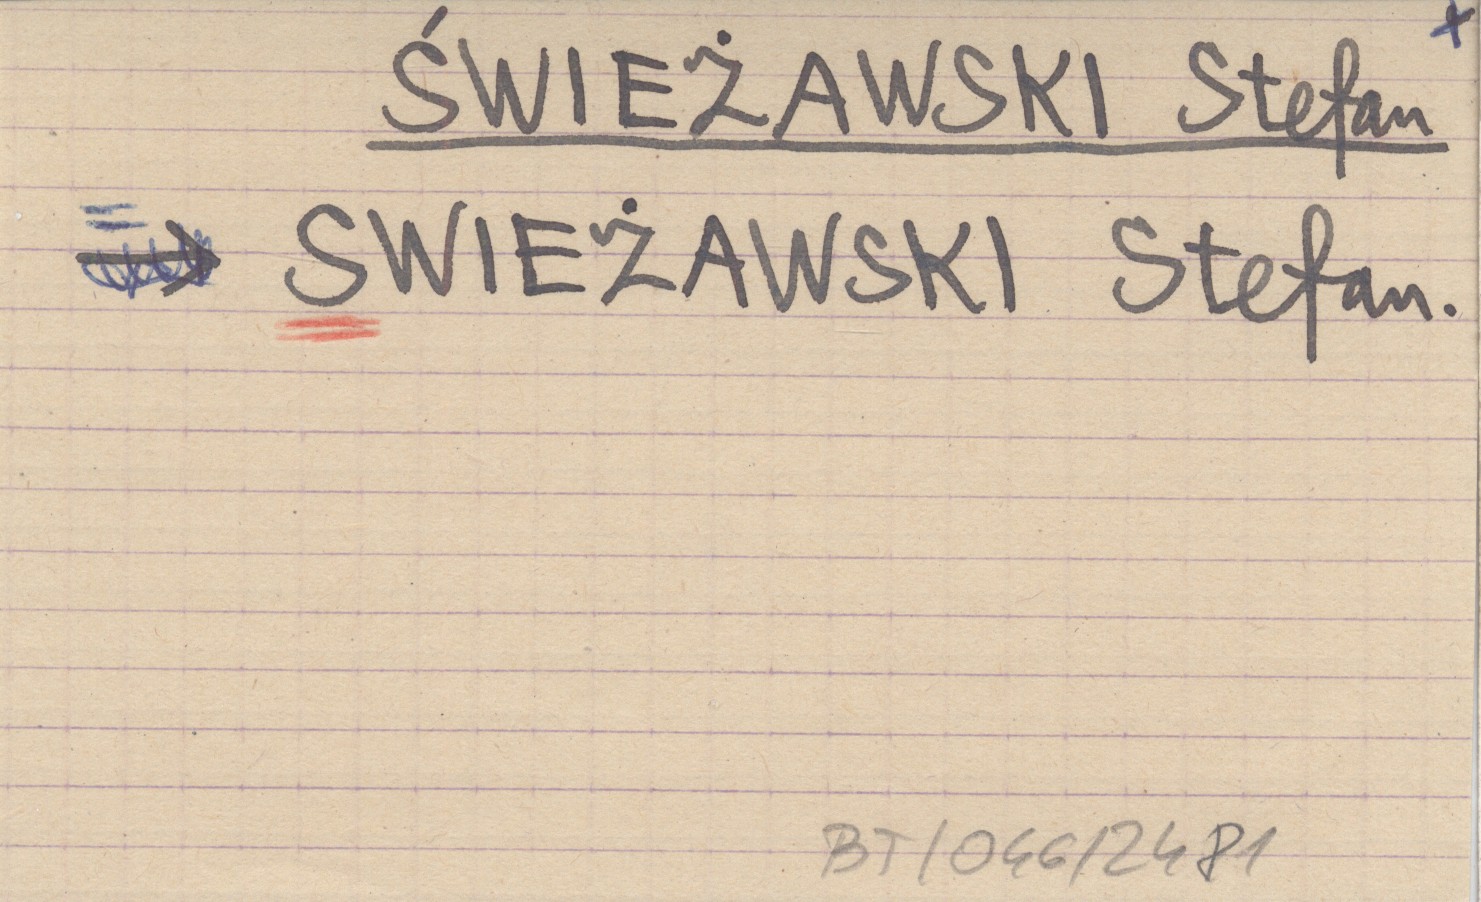 ŚWIEŻAWSKI Stefan
= SWIEŻAWSKI Stefan.
BT/046/2481